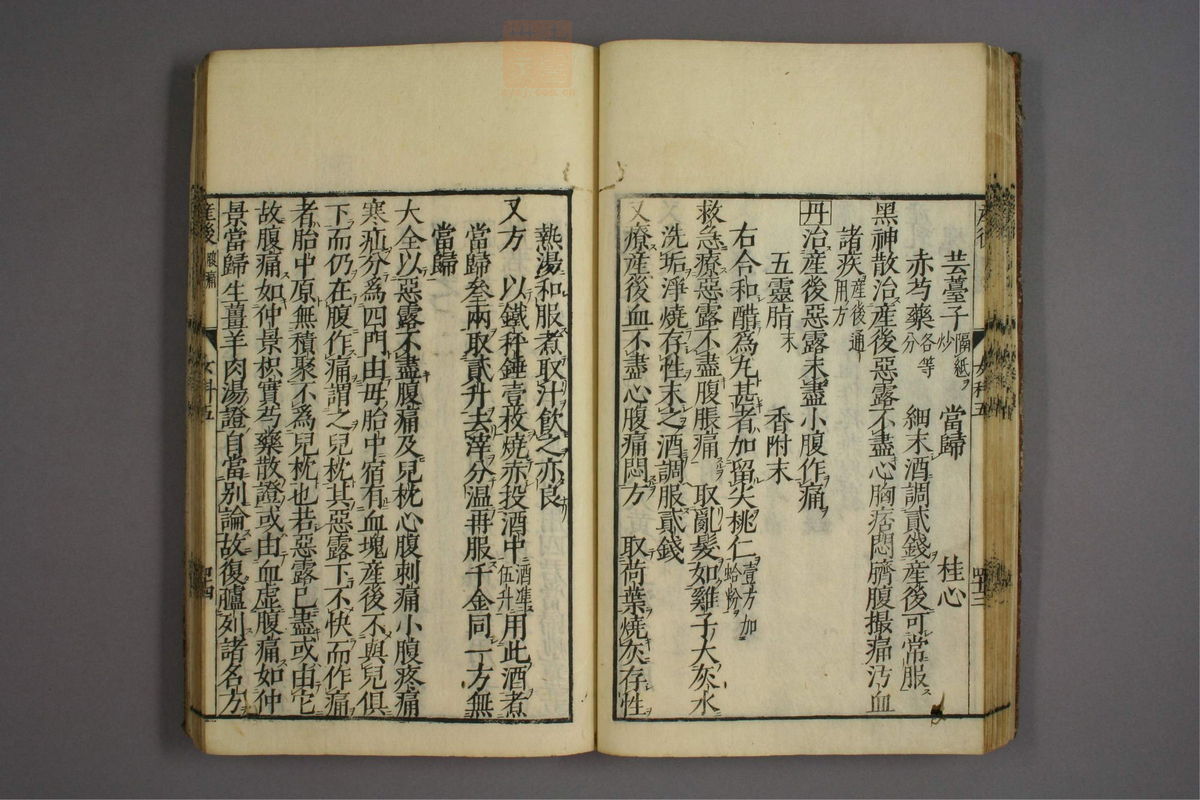 芸薹子隔紙炒　當歸　桂心
赤芍藥各等分　細末酒調貳錢産後可常服
黑神散治産後惡露不盡心胸痞悶臍腹撮痛汚血
諸疾産後通用方
丹治産後惡露未盡小腹作痛
五靈脂末　香附末
右合和醋爲丸甚者加留尖桃仁壹方加蛤粉
救急療惡露不盡腹脹痛　取亂髮如雞子大灰水
洗垢淨燒存性末之酒調服貳錢
又療産後血不盡心腹痛悶方　取荷葉燒灰存性
熱湯和服煮取汁飲之亦良
又方　以鐵秤錘壹枚燒赤投酒中酒準伍升用此酒煮
當歸叁兩取貳升去滓分温再服千金同一方無
當歸
大全以惡露不盡腹痛及兒枕心腹刺痛小腹疼痛
寒疝分爲四門由母胎中宿有血塊産後不與兒俱
下而仍在腹作痛謂之兒枕其惡露下不快而作痛
者胎中原無積聚不爲兒枕也若惡露已盡或由它
故腹痛如仲景枳實芍藥散證或由血虚腹痛如仲
景當歸生薑羊肉湯證自當别論故復臚列諸名方
産後腹痛　女科五　四四